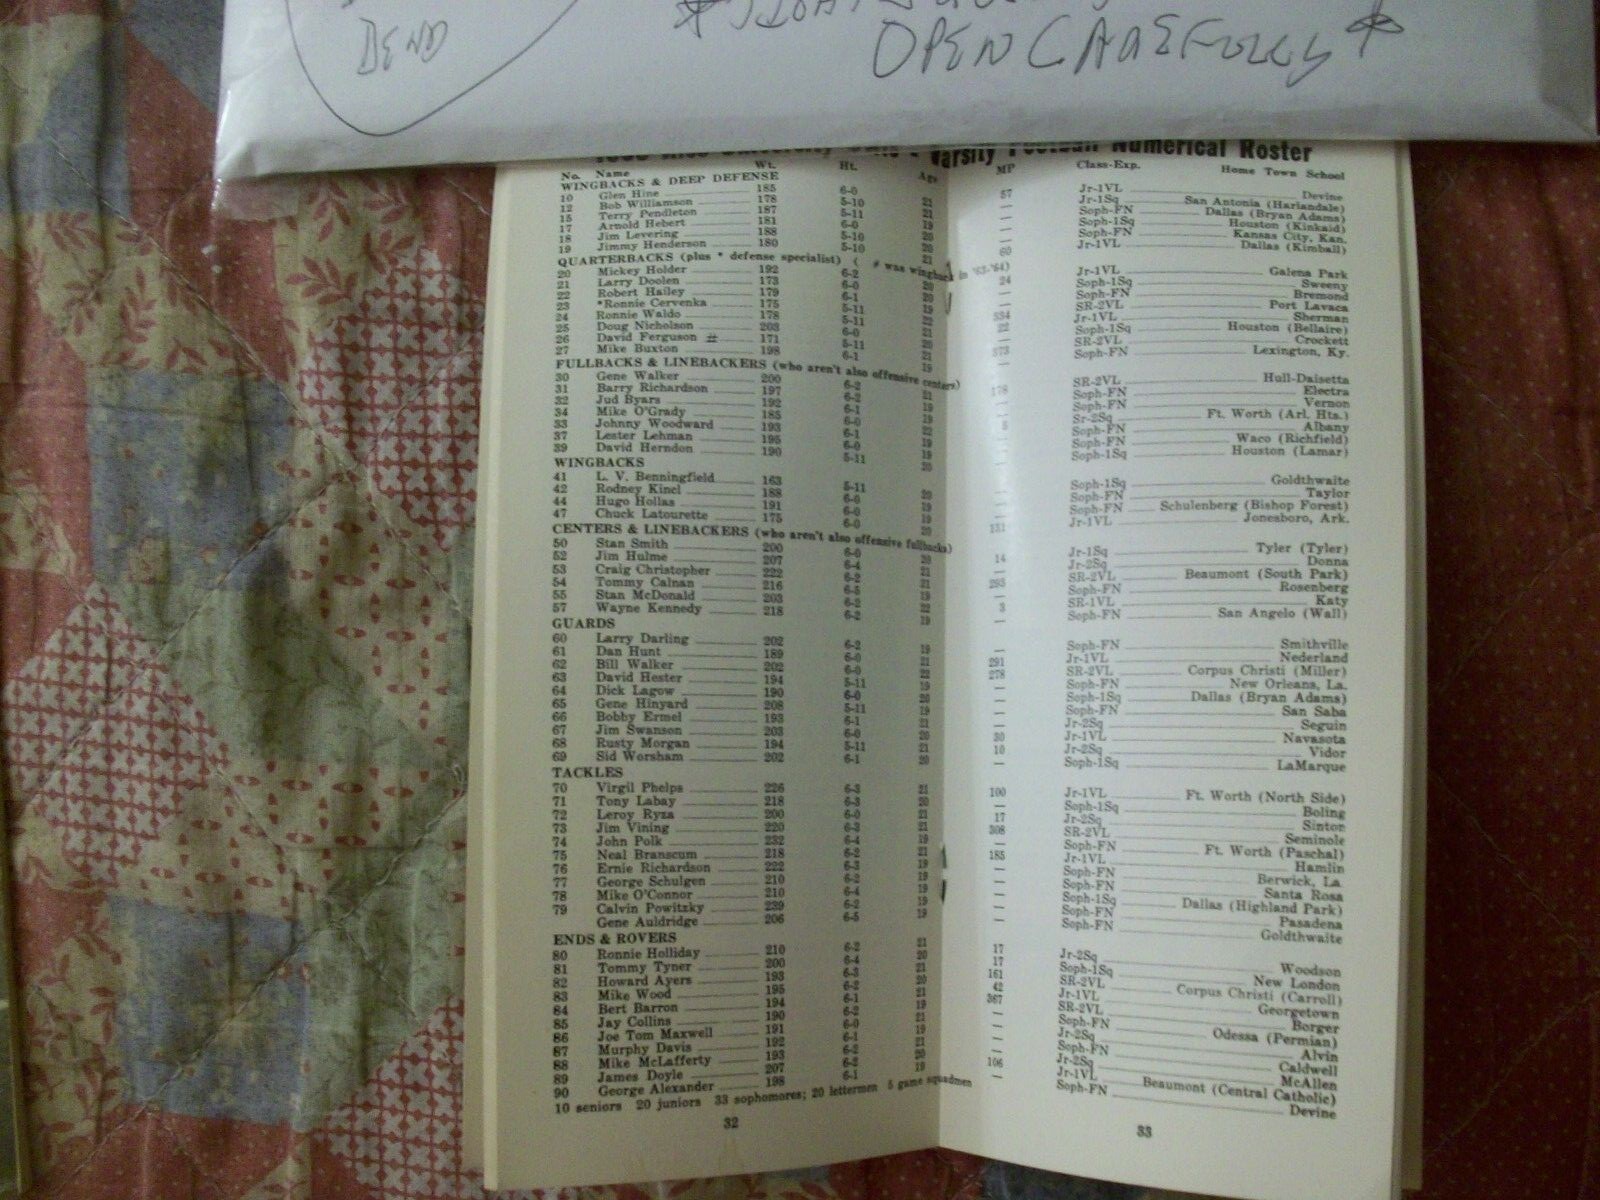 DEND
OPEN CAREFULLY *
Varsity Football Numerical Roster
No. Name Wt. Ht. Age MP Class-Exp. Home Town School
WINGBACKS & DEEP DEFENSE
10 Glen Hine 185 6-0 21 57 Jr-1VL Devine
12 Bob Williamson 178 5-10 21 — Jr-1Sq San Antonia (Harlandale)
15 Terry Pendleton 187 5-11 19 — Soph-FN Dallas (Bryan Adams)
17 Arnold Hebert 181 6-0 20 — Soph-1Sq Houston (Kinkaid)
18 Jim Levering 188 5-10 20 — Soph-FN Kansas City, Kan.
19 Jimmy Henderson 180 5-10 21 60 Jr-1VL Dallas (Kimball)
QUARTERBACKS (plus * defense specialist) ( # was wingback in '63-'64)
20 Mickey Holder 192 6-2 20 24 Jr-1VL Galena Park
21 Larry Doolen 173 6-0 20 — Soph-1Sq Sweeny
22 Robert Hailey 179 6-1 19 — Soph-FN Bremond
23 *Ronnie Cervenka 175 5-11 22 534 SR-2VL Port Lavaca
24 Ronnie Waldo 178 5-11 22 Jr-1VL Sherman
25 Doug Nicholson 203 6-0 20 — Soph-1Sq Houston (Bellaire)
26 David Ferguson # 171 5-11 21 373 SR-2VL Crockett
27 Mike Buxton 198 6-1 19 — Soph-FN Lexington, Ky.
FULLBACKS & LINEBACKERS (who aren't also offensive centers)
30 Gene Walker 200 6-2 21 178 SR-2VL Hull-Daisetta
31 Barry Richardson 197 6-2 19 — Soph-FN Electra
32 Jud Byars 192 6-1 19 — Soph-FN Vernon
34 Mike O'Grady 185 6-0 22 5 Sr-2Sq Ft. Worth (Arl. Hts.)
33 Johnny Woodward 193 6-1 19 — Soph-FN Albany
37 Lester Lehman 195 6-0 19 — Soph-FN Waco (Richfield)
39 David Herndon 190 5-11 20 — Soph-1Sq Houston (Lamar)
WINGBACKS
41 L. V. Benningfield 163 5-11 20 — Soph-1Sq Goldthwaite
42 Rodney Kincl 188 6-0 19 — Soph-FN Taylor
44 Hugo Hollas 191 6-0 19 — Soph-FN Schulenberg (Bishop Forest)
47 Chuck Latourette 175 6-0 20 131 Jr-1VL Jonesboro, Ark.
CENTERS & LINEBACKERS (who aren't also offensive fullbacks)
50 Stan Smith 200 6-0 20 14 Jr-1Sq Tyler (Tyler)
52 Jim Hulme 207 6-4 21 — Jr-2Sq Donna
53 Craig Christopher 222 6-2 21 293 SR-2VL Beaumont (South Park)
54 Tommy Calnan 216 6-5 — Soph-FN Rosenberg
55 Stan McDonald 203 6-2 22 3 SR-1VL Katy
57 Wayne Kennedy 218 6-2 19 — Soph-FN San Angelo (Wall)
GUARDS
60 Larry Darling 202 6-2 19 — Soph-FN Smithville
61 Dan Hunt 189 6-0 21 291 Jr-1VL Nederland
62 Bill Walker 202 6-0 22 278 SR-2VL Corpus Christi (Miller)
63 David Hester 194 5-11 19 — Soph-FN New Orleans, La.
64 Dick Lagow 190 6-0 20 — Soph-1Sq Dallas (Bryan Adams)
65 Gene Hinyard 208 5-11 19 — Soph-FN San Saba
66 Bobby Ermel 193 6-1 21 — Jr-2Sq Seguin
67 Jim Swanson 203 6-0 20 30 Jr-1VL Navasota
68 Rusty Morgan 194 5-11 21 10 Jr-2Sq Vidor
69 Sid Worsham 202 6-1 20 — Soph-1Sq LaMarque
TACKLES
70 Virgil Phelps 226 6-3 21 100 Jr-1VL Ft. Worth (North Side)
71 Tony Labay 218 6-3 20 — Soph-1Sq Boling
72 Leroy Ryza 200 6-0 21 17 Jr-2Sq Sinton
73 Jim Vining 220 6-3 21 308 SR-2VL Seminole
74 John Polk 232 6-4 19 — Soph-FN Ft. Worth (Paschal)
75 Neal Branscum 218 6-2 21 185 Jr-1VL Hamlin
76 Ernie Richardson 222 6-3 19 — Soph-FN Berwick, La
77 George Schulgen 210 6-2 19 — Soph-FN Santa Rosa
78 Mike O'Connor 210 6-4 19 — Soph-1Sq Dallas (Highland Park)
79 Calvin Powitzky 239 6-2 19 — Soph-FN Pasadena
Gene Auldridge 206 6-5 19 — Soph-FN Goldthwaite
ENDS & ROVERS
80 Ronnie Holliday 210 6-2 21 17 Jr-2Sq Woodson
81 Tommy Tyner 200 6-4 20 17 Soph-1Sq New London
82 Howard Ayers 193 6-3 21 161 SR-2VL Corpus Christi (Carroll)
83 Mike Wood 195 6-2 20 42 Jr-1VL Georgetown
84 Bert Barron 194 6-1 21 367 SR-2VL Borger
85 Jay Collins 190 6-2 19 — Soph-FN Odessa (Permian)
86 Joe Tom Maxwell 191 6-0 21 — Jr-2Sq Alvin
87 Murphy Davis 192 6-1 19 — Soph-FN Caldwell
88 Mike McLafferty 193 6-2 21 — Jr-2Sq McAllen
89 James Doyle 207 6-2 20 106 Jr-1VL Beaumont (Central Catholic)
90 George Alexander 198 6-1 19 — Soph-FN Devine
10 seniors 20 juniors 33 sophomores; 20 lettermen 5 game squadmen
32
33